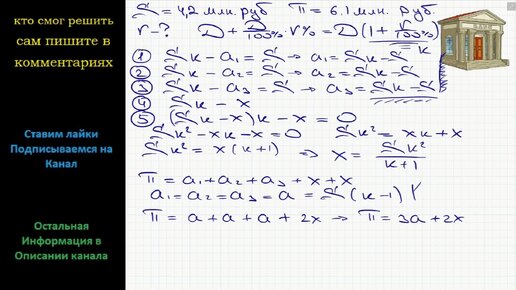 кто смог решить
сам пишите в
комментариях
Ставим лайки
Подписываемся на
Канал
Остальная
Информация в
Описании канала
S = 4,2 млн. руб П = 6.1 млн. руб.
r - ? D + D/100% · r% = D(1 + r/100%)
k
① Sк - a₁ = S → a₁ = Sк - S
② Sк - a₂ = S → a₂ = Sк - S
③ Sк - a₃ = S → a₃ = Sк - S
④ Sк - x
⑤ (Sк - x)к - x = 0
Sк² - xк - x = 0 Sк² = xк + x
Sк² = x(к+1) ⇒ x = Sк²/(к+1)
П = a₁ + a₂ + a₃ + x + x
a₁ = a₂ = a₃ = a = S(к-1)
П = a + a + a + 2x → П = 3a + 2x